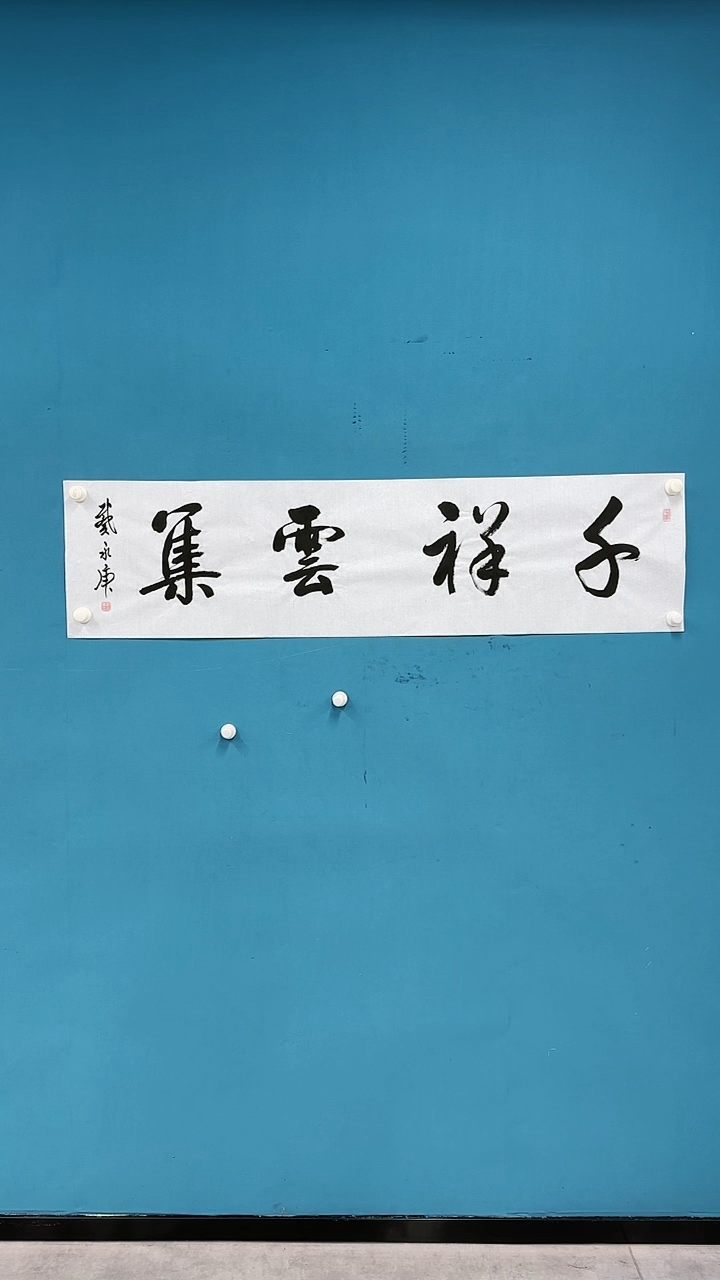 千祥雲集
戴永庚